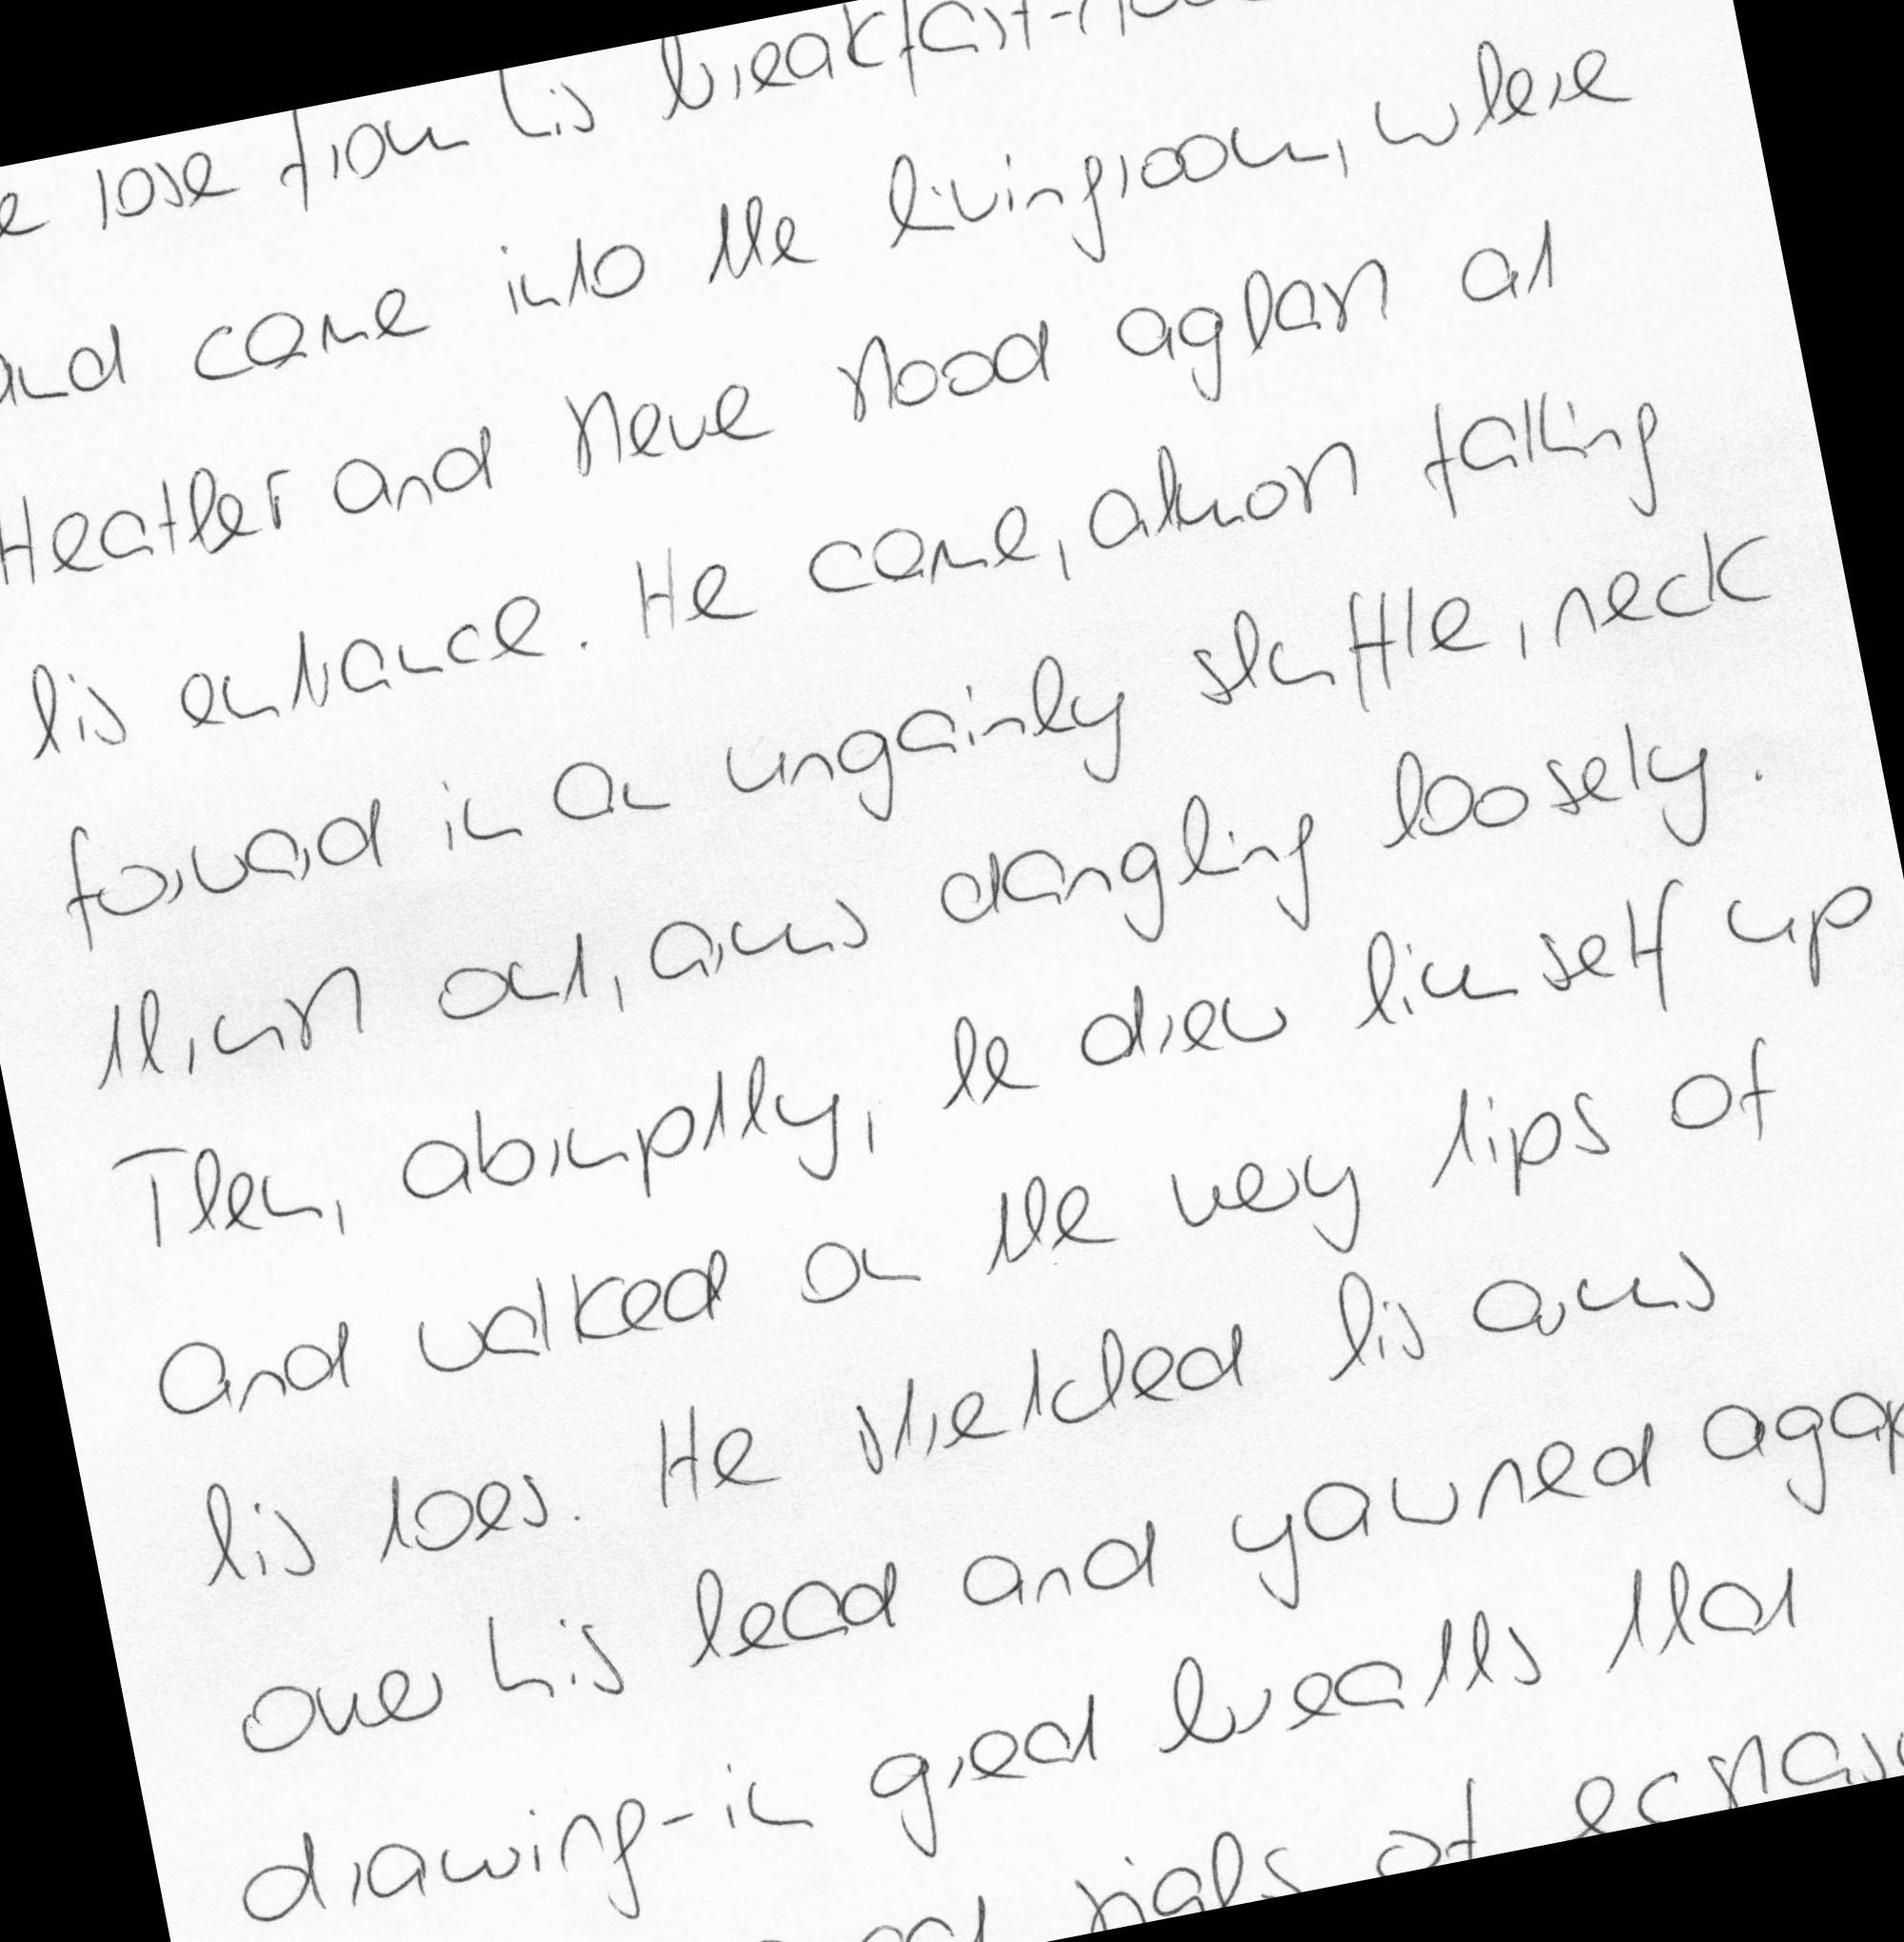 rose from his breakfast-nook
and came into the livingroom, where
Heather and Steve stood aghast at
his entrance. He came, almost falling
forward in an ungainly shuffle, neck
thrust out, arms dangling loosely.
Then, abruptly, he drew himself up
and walked on the very tips of
his toes. He stretched his arms
over his head and yawned agap
drawing-in great breaths that
sighs of